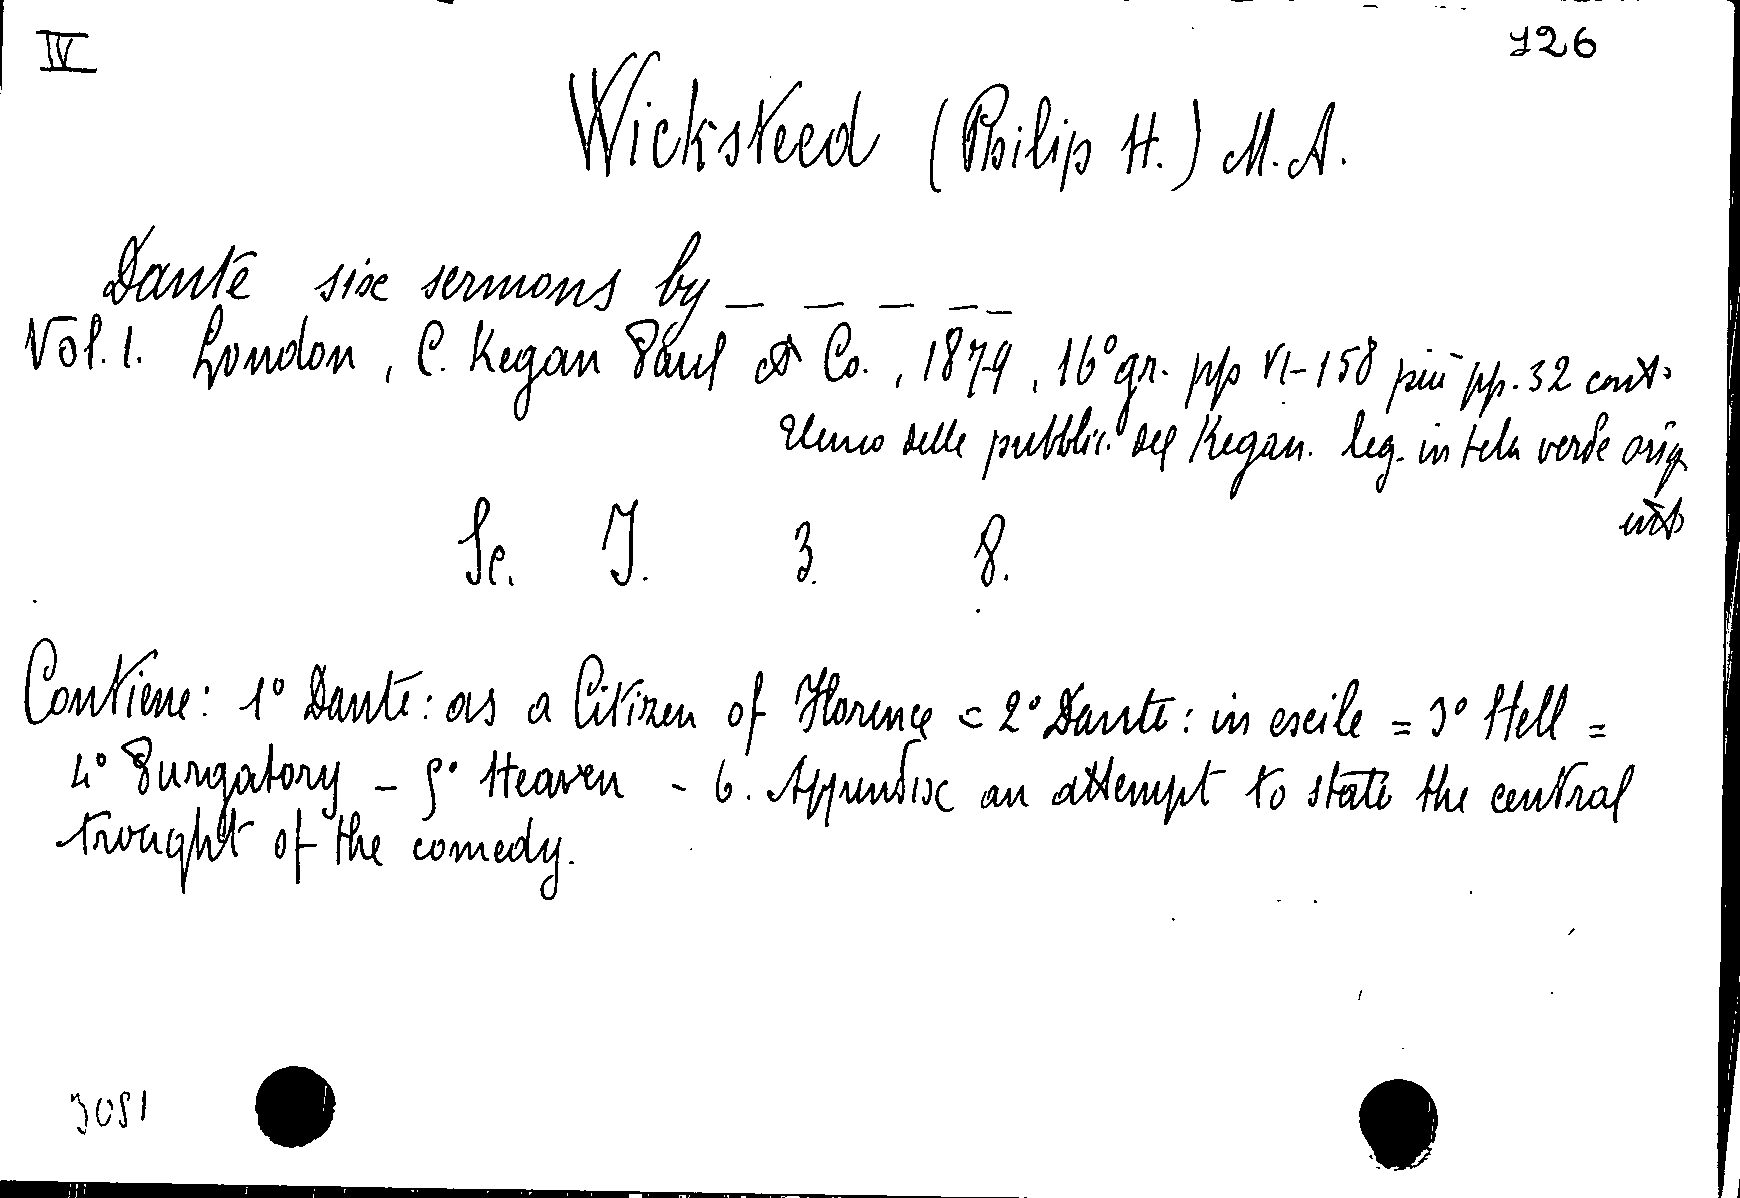 IV
726
Wicksteed (Philip H.) M. A.
Dante six sermons by _ _ _ _ _
Vol. 1. London, C. Kegan Paul & Co., 1879, 16° gr. pp VI-158 più pp. 32 cont.
elenco delle pubblic. del Kegan. leg. in tela verde orig
Sc. I. 3. 8.
Contiene: 1° Dante: as a Citizen of Florence = 2° Dante: in exile = 3° Hell =
4° Purgatory - 5° Heaven - 6. Appendix an attempt to state the central
trought of the comedy.
3051